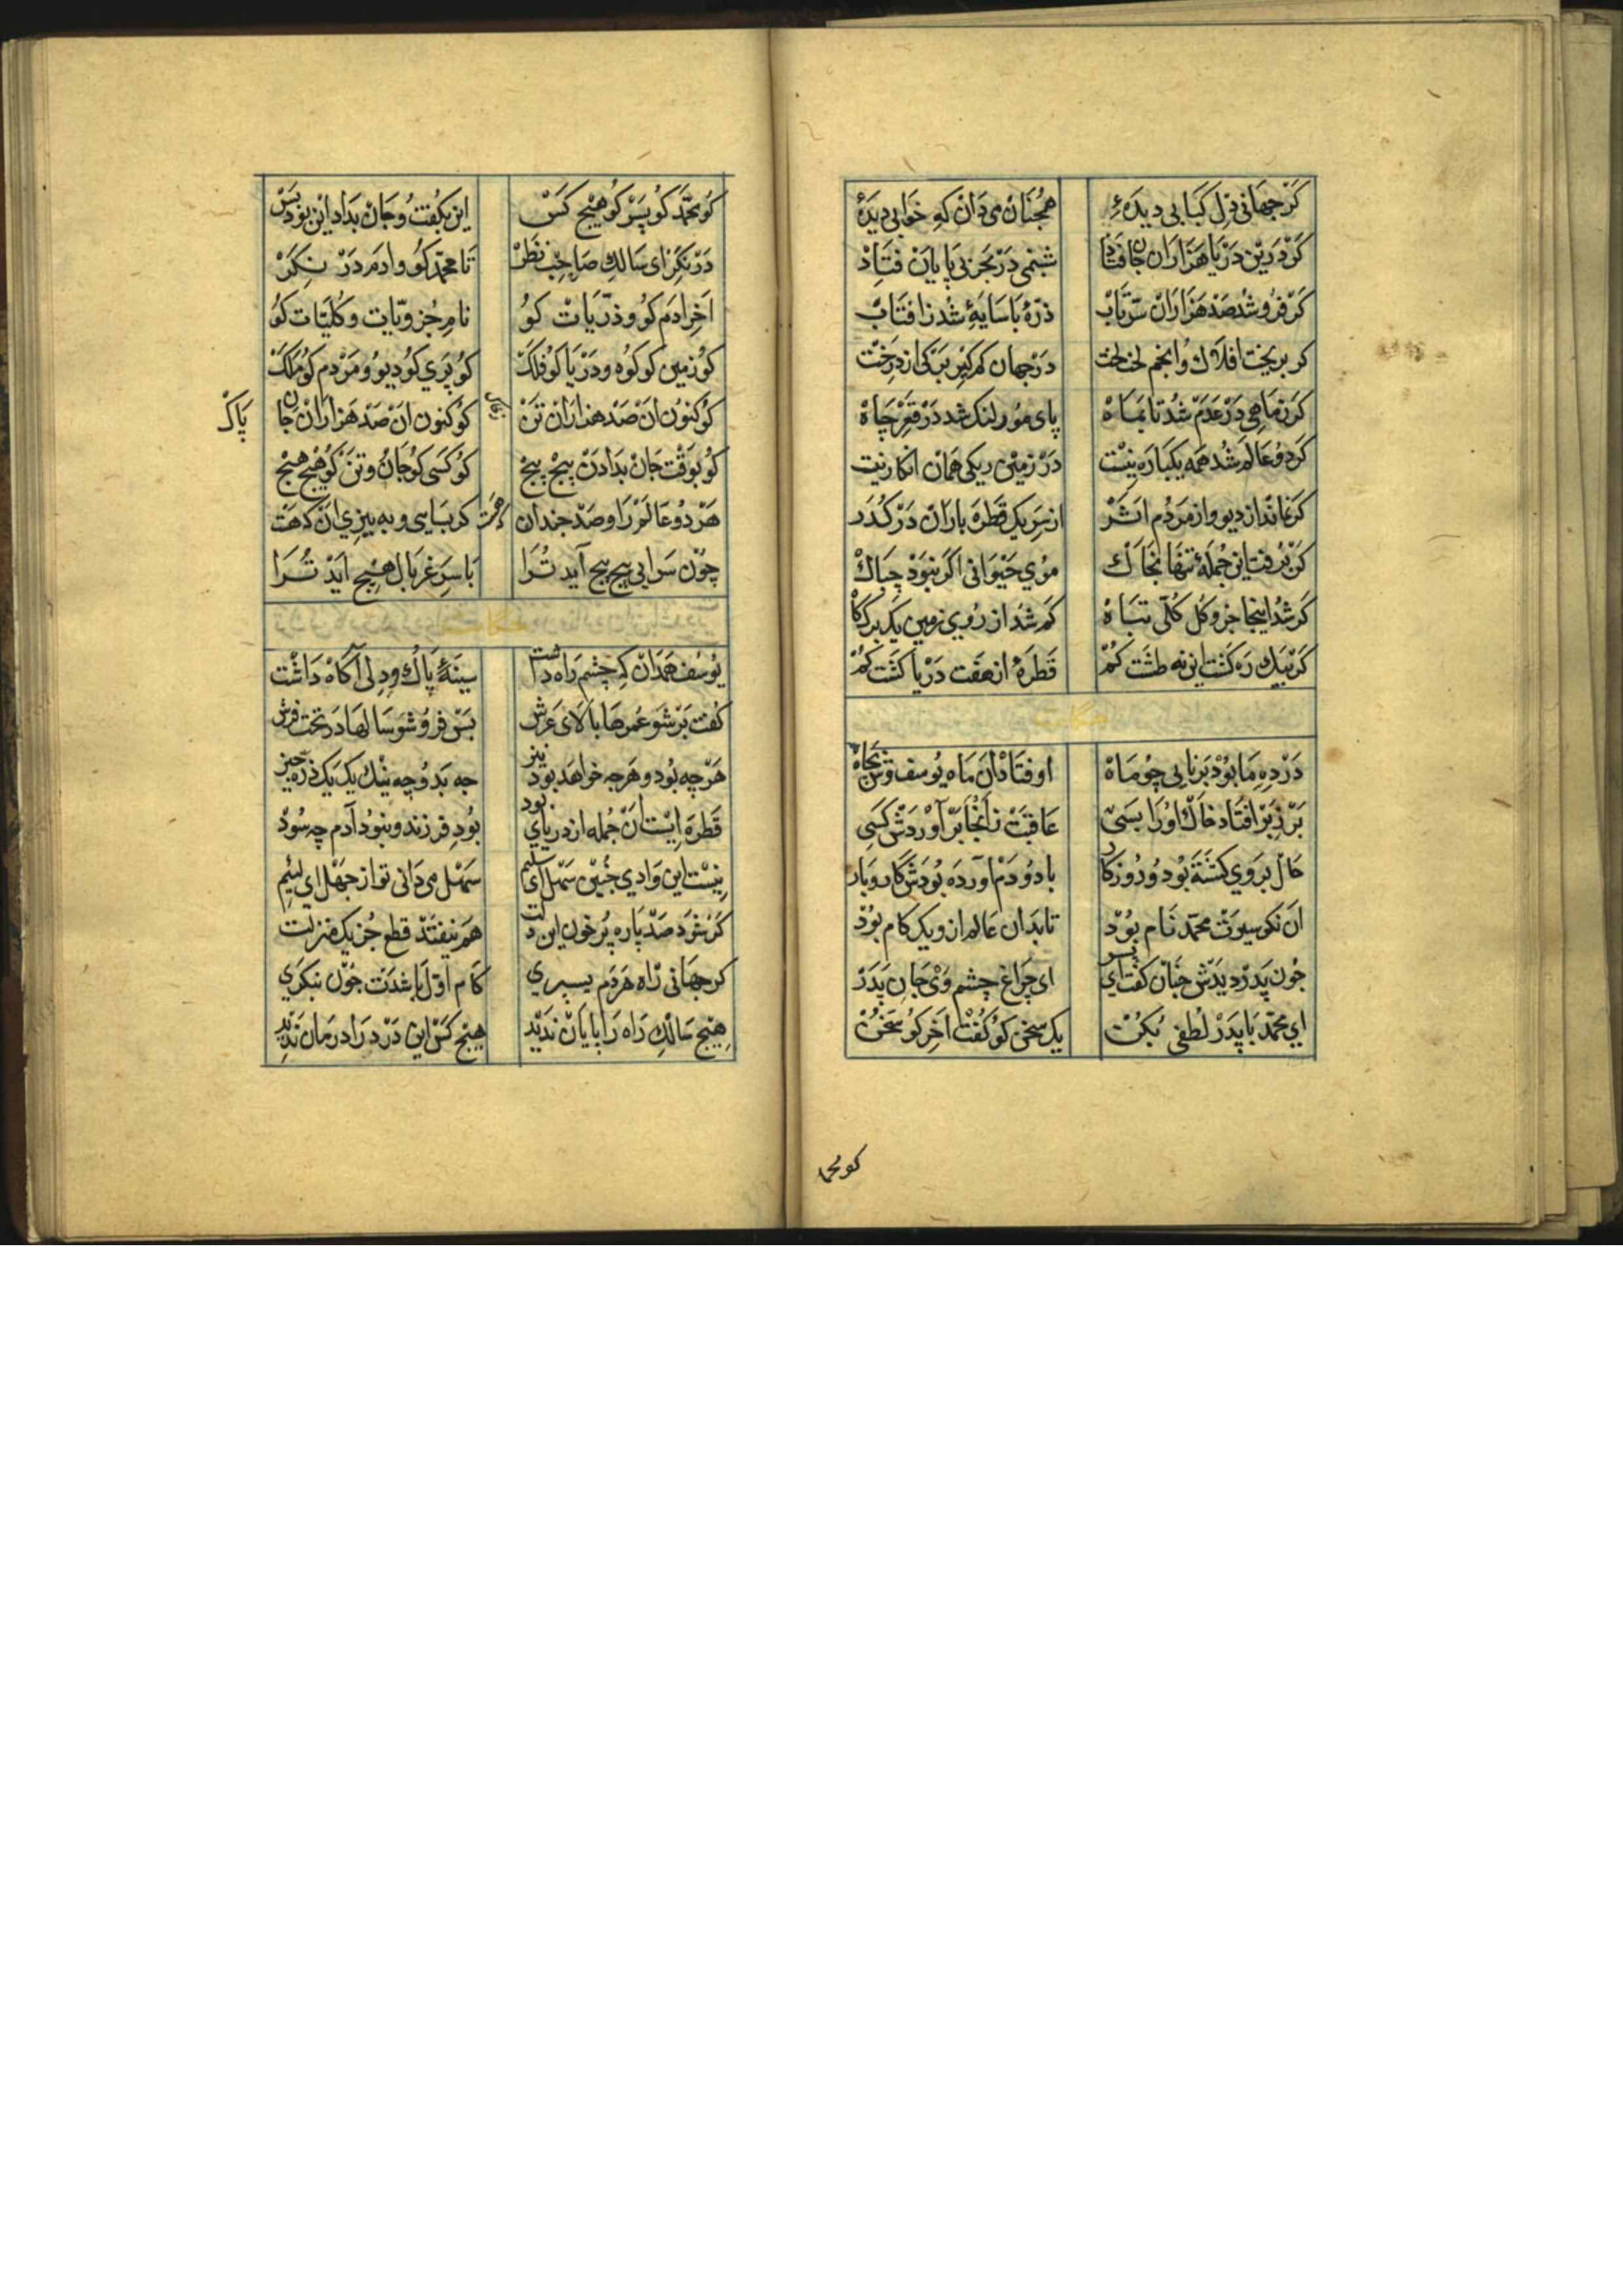 کر جهانی دل کبابی دیدهٔ همچنان می دان که خوابی دیدهٔ
کر درین دریا هزاران جان فتاد شبنمی در بحر بی پایان فتاد
کر فرو شد صد هزاران سر بتاب ذرهٔ با سایهٔ شد ز افتاب
کر بریخت افلاک و انجم لخت لخت در جهان کم کیر برکی از درخت
کر ز ماهی در عدم شد تا بماه پای مور لنک شد در قعر چاه
کر دو عالم شد همه یکباره نیست در زمین ریکی همان انکار نیست
کر نماند از دیو و از مردم اثر از سر یک قطره باران در کذر
کر برفت این جمله تنها بخاک موی حیوانی اکر نبود چه باک
کر شد اینجا جزو و کل کلی تباه کم شد از روی زمین یک برک کاه
کر بیک ره کشت این نه طشت کم قطرهٔ از هفت دریا کشت کم
در ده ما بود برنایی چو ماه اوفتاد ان ماه یوسف وش بچاه
بر زبر افتاد خاک او را بسی عاقبت ز انجا بر آوردش کسی
خاک بر وی کشته بود و روزکار با دو دم آورده بودش کار و بار
ان نکو سیرت محمد نام بود تا بدان عالم ازو یک کام بود
چون پدر دیدش چنان کفت ای پسر ای چراغ چشم وی جان پدر
ای محمد با پدر لطفی بکن یک سخن کو کفت اخر کو سخن
کو محمد
کو محمد کو پسر کو هیچ کس این بکفت و جان بداد این بود بس
در نکر ای سالک صاحب نظر تا محمد کو و ادم در نکر
اخر ادم کو و ذریات کو نام جزویات و کلیات کو
کو زمین کو کوه و دریا کو فلک کو پری کو دیو و مردم کو ملک
کو کنون ان صد هزاران تن بخاک کو کنون ان صد هزاران جان پاک
کو بوقت جان بدادن پیچ پیچ کو کسی کو جان و تن کو هیچ هیچ
هر دو عالم را و صد چندان که هست کر بسایی و به بیزی ان که هست
چون سرایی پیچ پیچ آید ترا با سر غربال هیچ اید ترا
یوسف همدان که چشم راه داشت سینهٔ پاک و دلی آکاه داشت
کفت بر شو عمرها بالای عرش پس فرو شو سالها در تحت فرش
هر چه بود و هر چه خواهد بود نیز چه بد و چه نیک یک یک ذره چیز
قطره ایست ان جمله از دریای بود بود فرزند و نبود آدم چه سود
نیست این وادی چنین سهل ای سلیم سهل می دانی تو از جهل ای لئیم
کر شود صد پاره پر خون این دلت هم نیفتد قطع جز یک منزلت
کر جهانی راه هر دم بسپری کام اول باشدت چون بنکری
هیچ سالک راه را پایان ندید هیچ کس این درد را درمان ندید